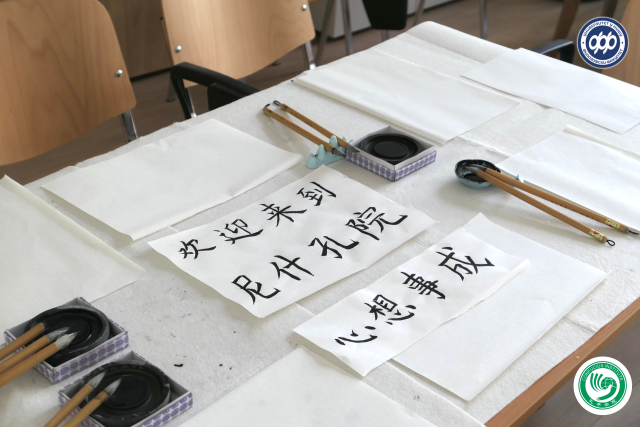 欢迎来到
尼什孔院
心想事成